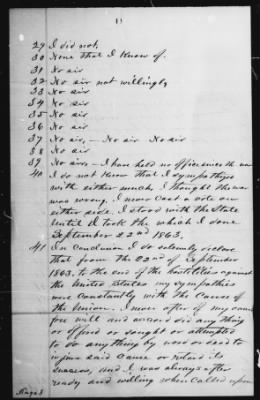 29 I did not,
30 None that I know of.
31 No sir
32 No sir not willingly
33 No sir
34 No sir
35 No sir
36 No sir
37 No sir, - No sir No sir
38 No sir
39 No sir, - I have held no office since the war
40 I do not know that I sympathise
with either much, I thought the war
was wrong. I never cast a vote on
either side. I stood with the State
until I took the which I done
September 22nd 1863,
41 In conclusion I do solemnly declare
that from the 22nd of September
1863, to the end of the hostilities against
the United States my sympathies
were constantly with the cause of
the Union. I never after of my own
free will and accord did any thing
or offered or sought or attempted
to do anything by word or deed to
injure said cause or retard its
success, and I was always after
ready and willing when called upon